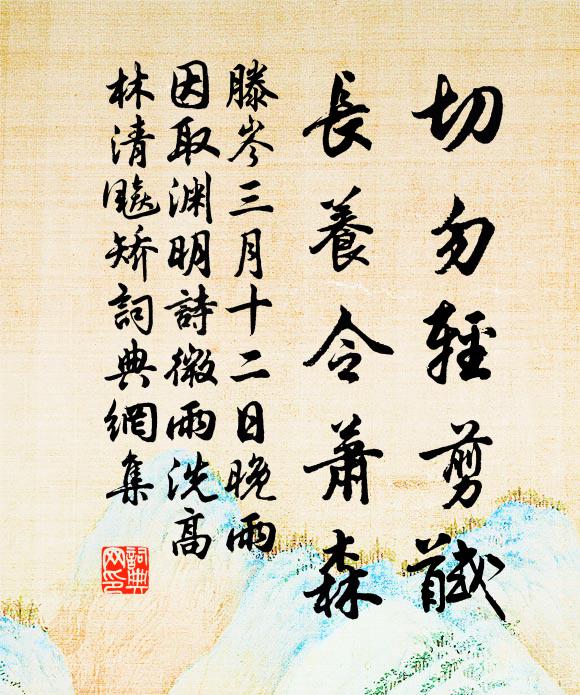 切勿輕剪馘
長養令蕭森
滕岑三月十二日晚雨
因取渊明詩微雨洗高
林清飇矯詞典網集
詞典网印